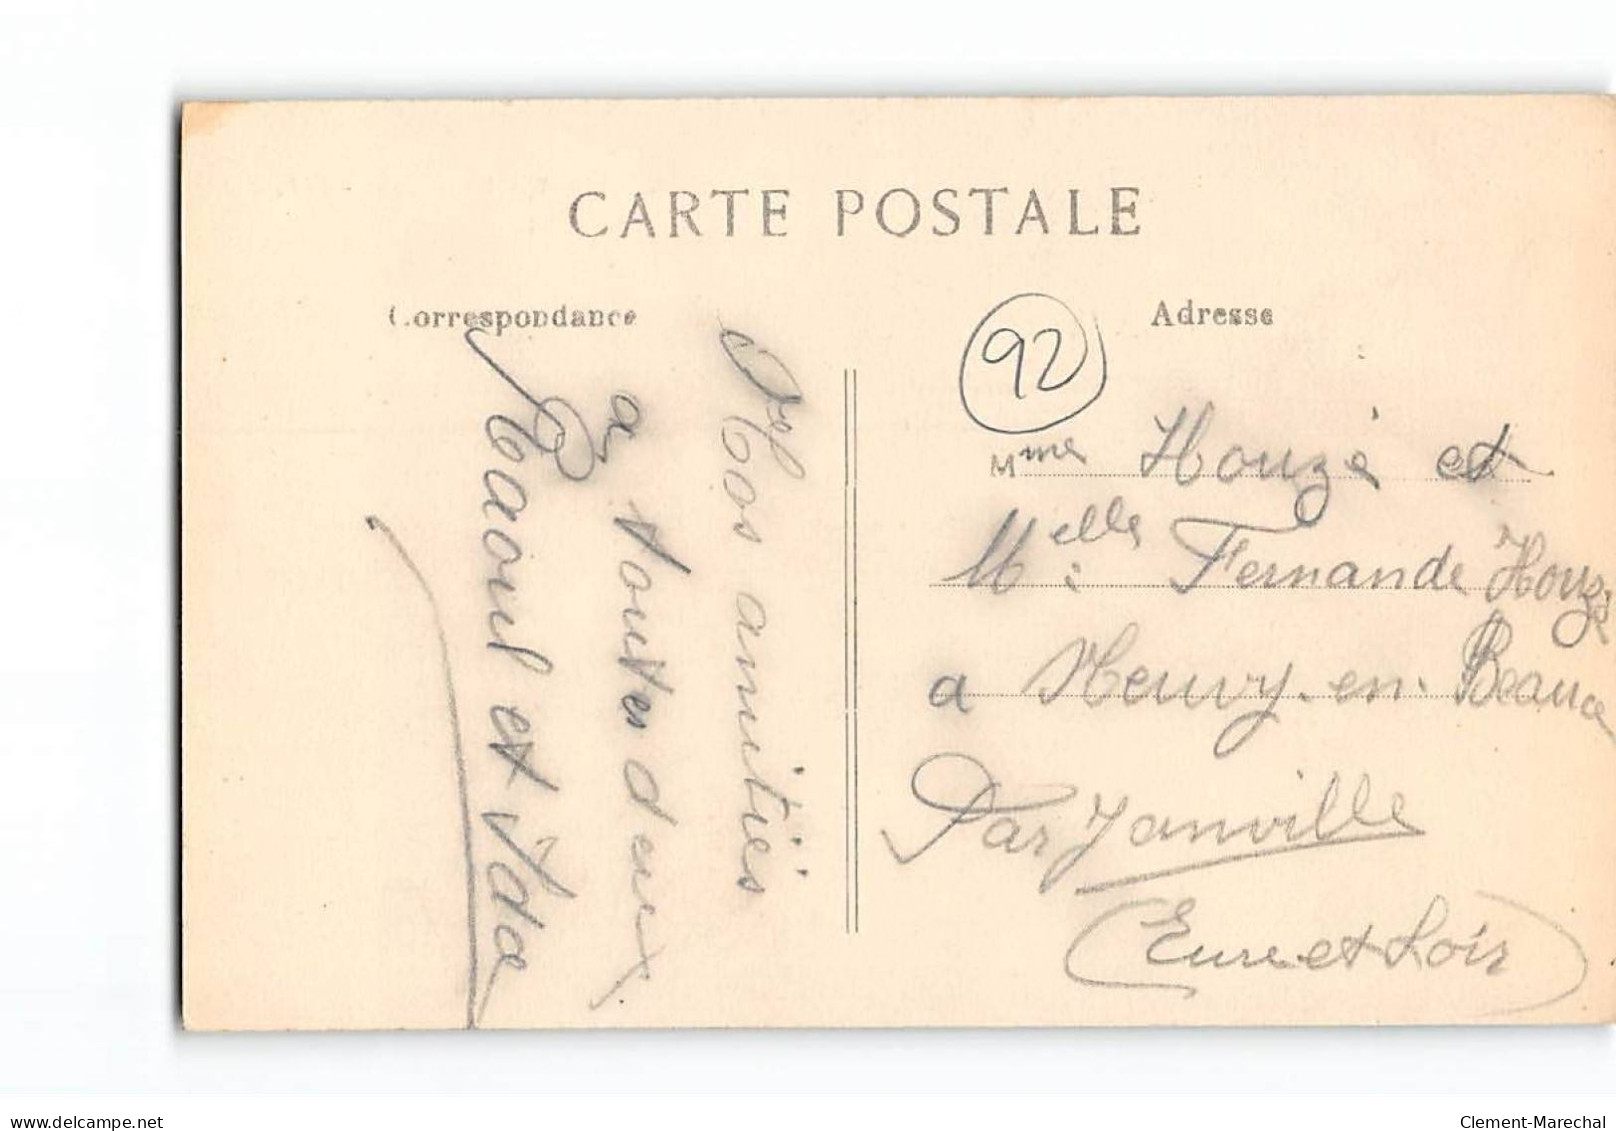 CARTE POSTALE
Correspondance
Adresse
92
Nos amitiés
a toutes deux
Raoul et Ida
Mme Houzé et
Melle: Fernande Houzé
a Neuvy-en-Beauce
Par Janville
(Eure et Loir)
www.delcampe.net
Clement-Marechal